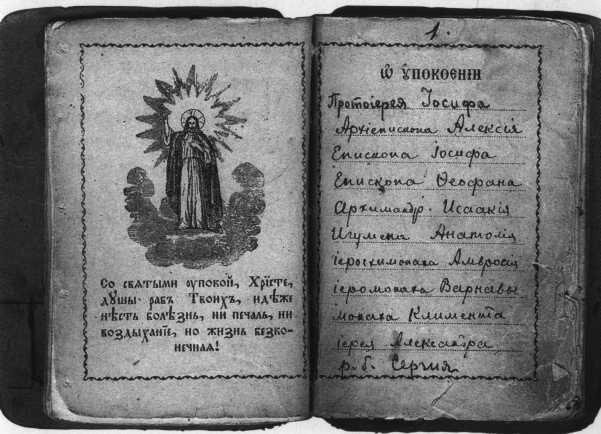 Со святыми ѹпокой, Хрїсте,
дꙋшы рабъ Твоихъ, идѣже
нѣсть болѣзнь, ни печаль, ни
воздыханїе, но жизнь безко-
нечная!
1.
Ѡ ᲂу҆покоенїи
Протоіерея Іосифа
Архіепископа Алексія
Епископа Іосифа
Епископа Ѳеофана
Архимандр. Исаакія
Игумена Анатолія
іеросхимонаха Амвросія
іеромонаха Варнавы
монаха Климента
іерея Александра
р. б. Сергия